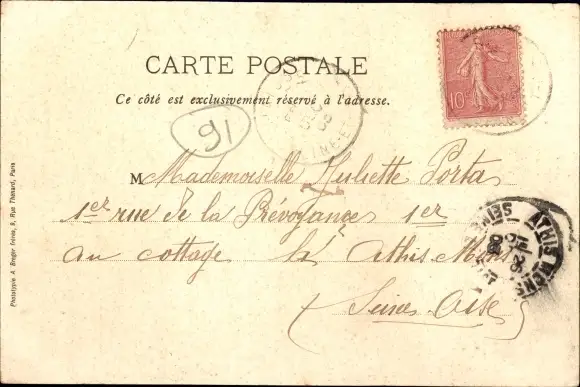 CARTE POSTALE
Ce côté est exclusivement réservé à l'adresse.
10
91
M Mademoiselle Juliette Porta
1er rue de la Prévoyance 1er
au cottage la Athis Mons
(Seine Oise)
ATHIS MONS
SEINE
Phototypie A. Breger frères, 9, Rue Thénard, Paris